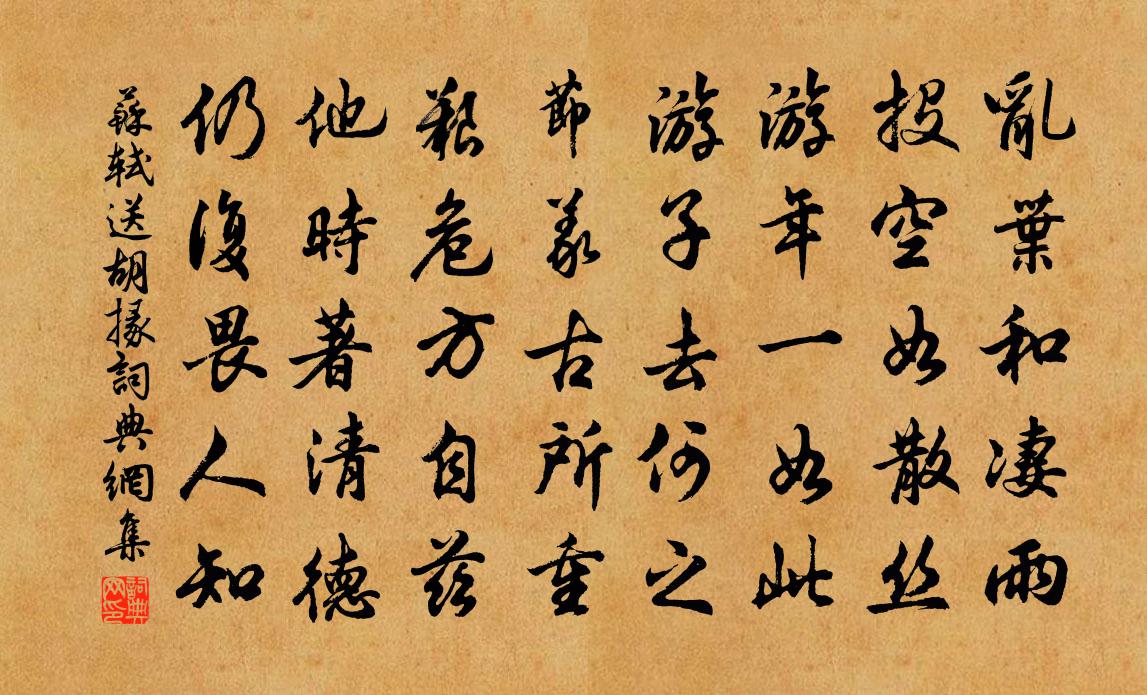 亂葉和凄雨
投空如散丝
游年一如此
游子去何之
節義古所重
艱危方自茲
他時著清德
仍復畏人知
蘇軾送胡掾詞典網集
詞典网印